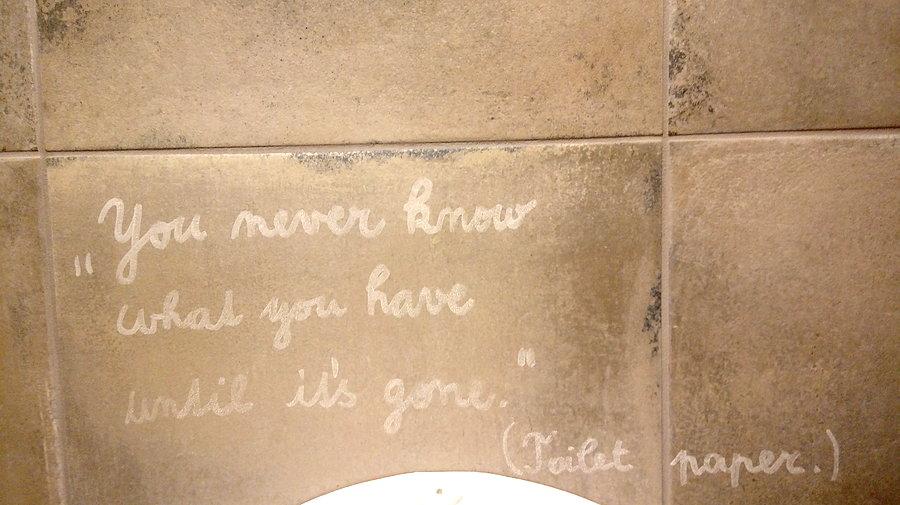 "You never know
what you have
until it's gone."
(Toilet paper.)